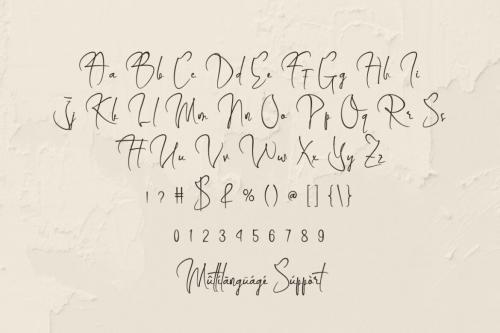 Aa Bb Cc Dd Ee Ff Gg Hh Ii
Jj Kk Ll Mm Nn Oo Pp Qq Rr Ss
Tt Uu Vv Ww Xx Yy Zz
! ? # $ & % () @ [] {\}
0 1 2 3 4 5 6 7 8 9
Mûltilāngüágé Súppört